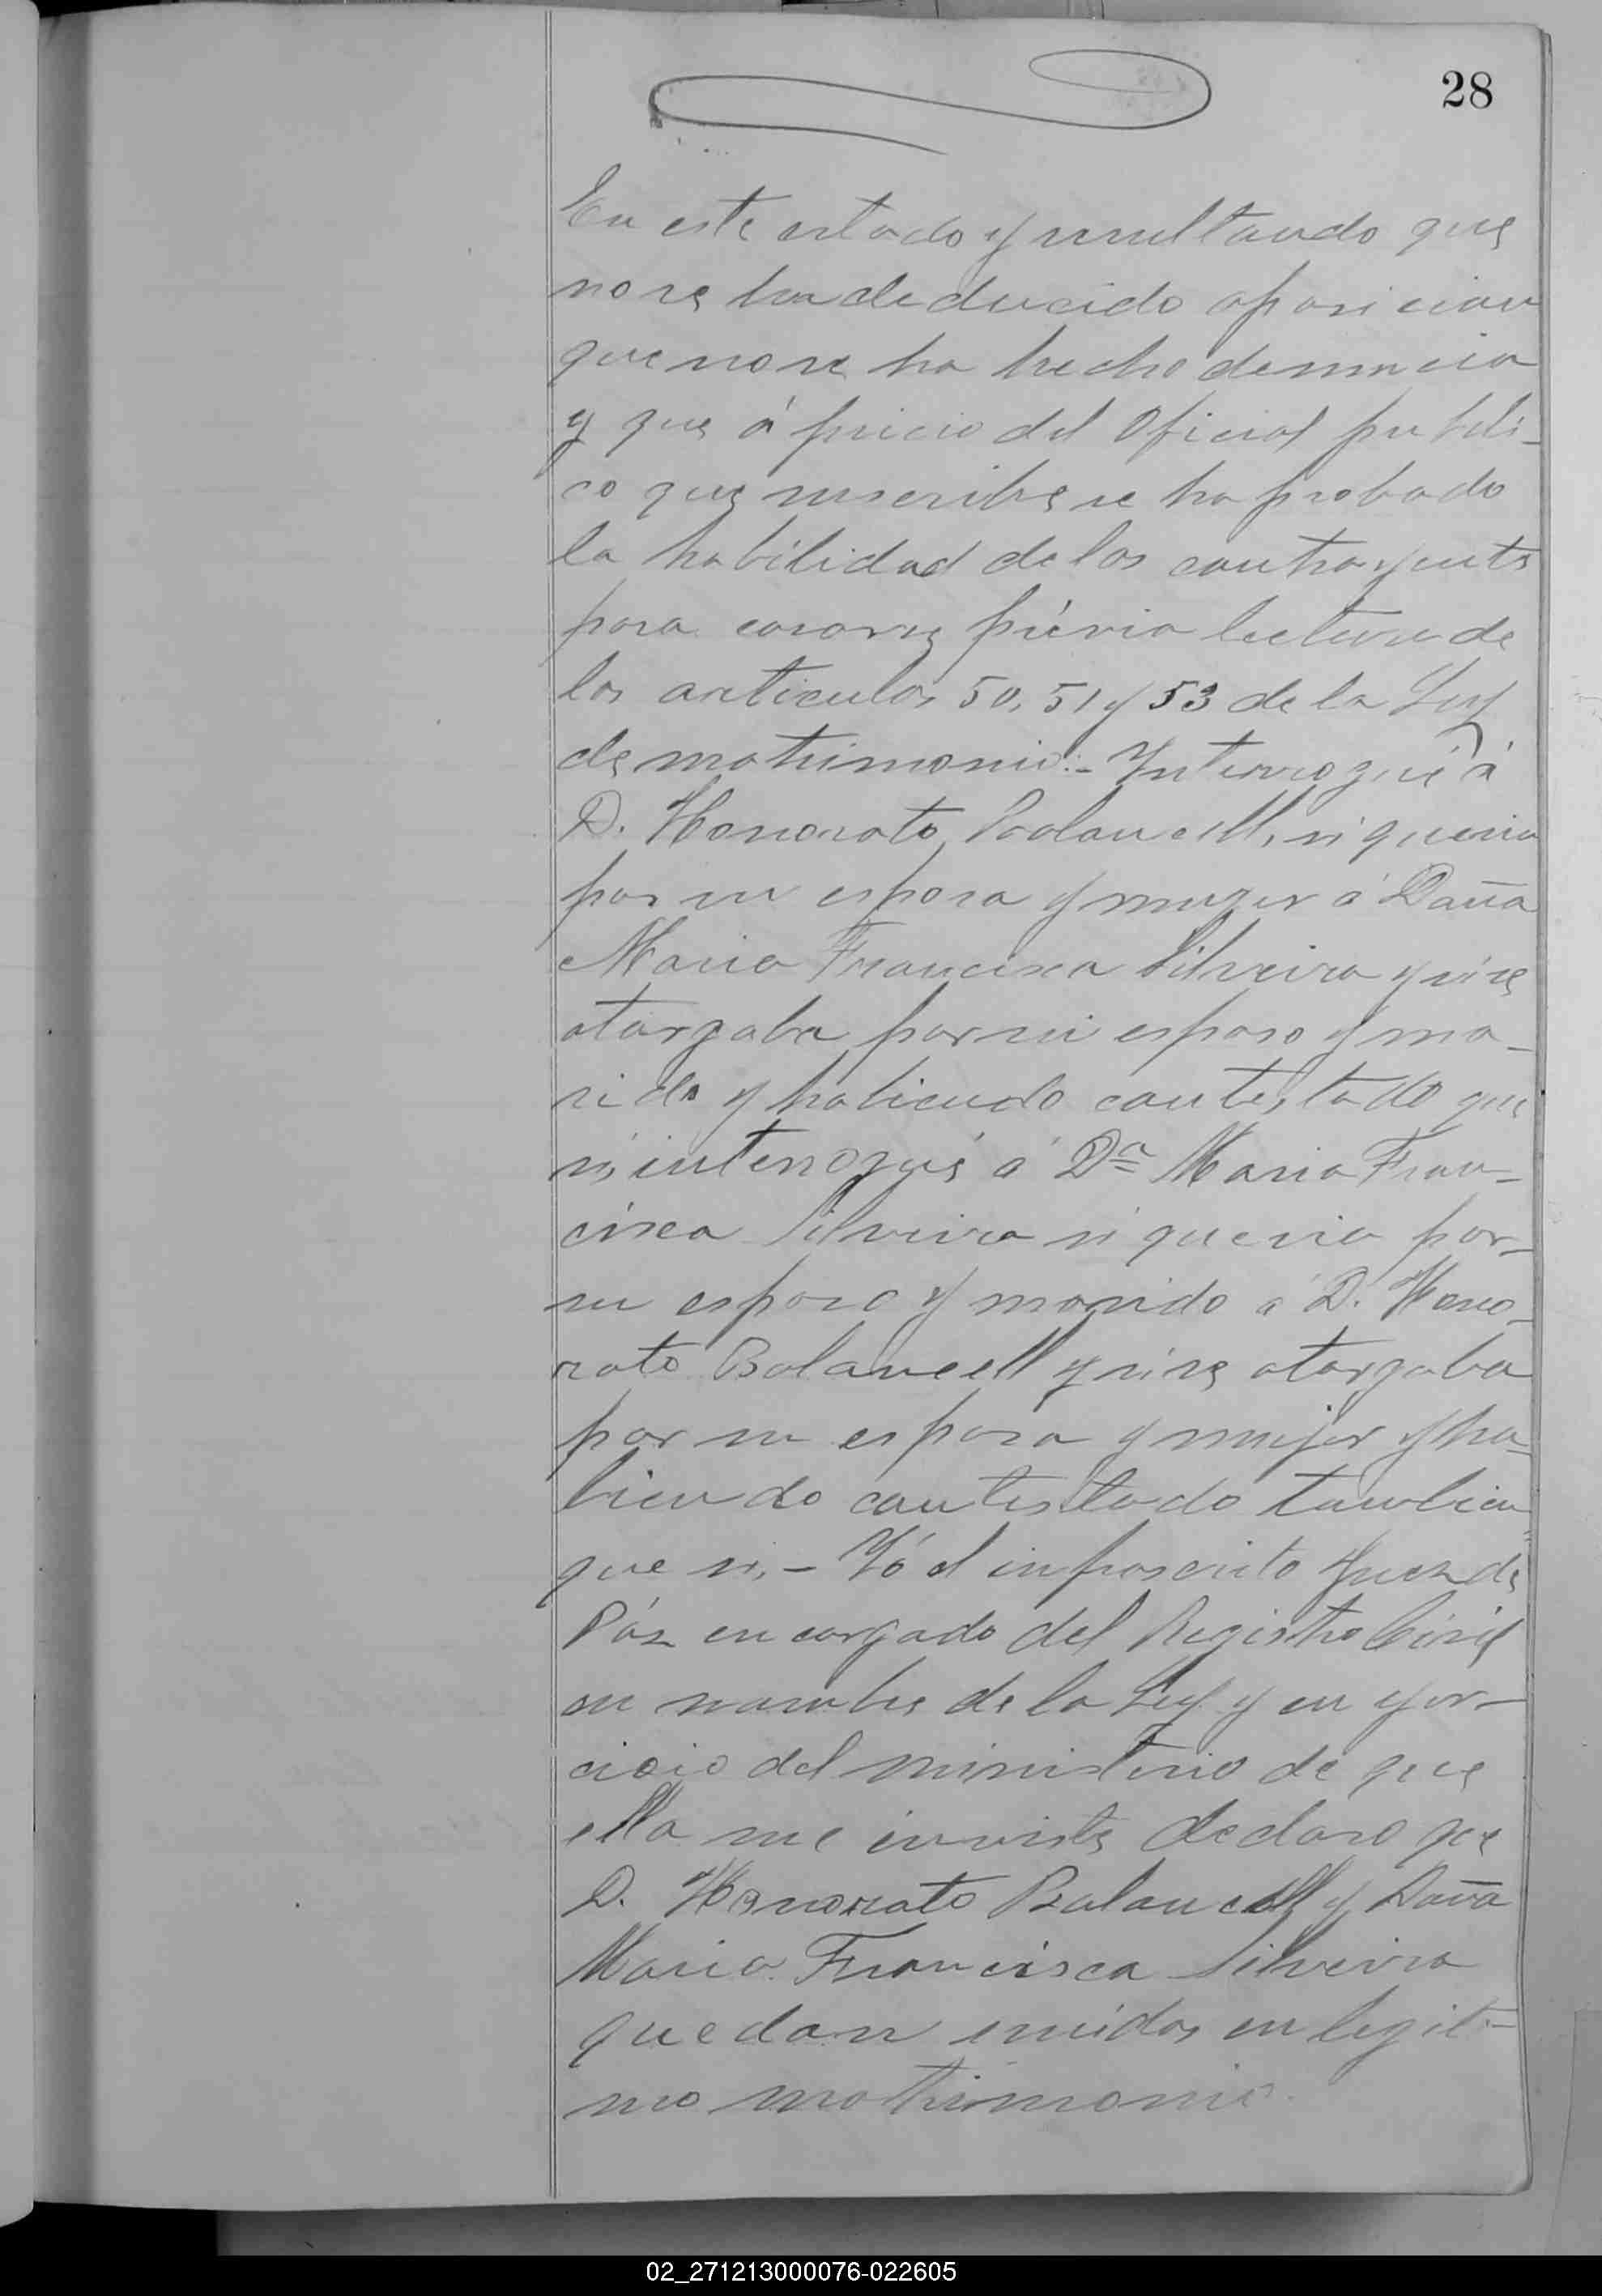 28
En este estado y resultando que
no se ha deducido oposicion
que no se ha hecho denuncia
y que á juicio del Oficial publi-
co que suscribe se ha probado
la habilidad de los contrayents
para casarse prévia lectura de
los articulos 50, 51 y 53 de la Ley
de matrimonio.- Interrogué á
D. Honorato Balancell, si queria
por su esposa y muger á Doña
Maria Francisca Silveira y si se
otorgaba por su esposo y ma-
rido y habiendo contestado que
si, interrogué á Da Maria Fran-
cisca Silveira si queria por
su esposo y marido á D. Hono-
rato Balancell y si se otorgaba
por su esposa y mujer y ha-
biendo contestado tambien
que si,- Yó el infrascrito Juez de
Páz encargado del Registro Civil
en nombre de la Ley y en ejer-
cicio del ministerio de que
ella me inviste declaro que
D. Honorato Balancell y Doña
Maria Francisca Silveira
quedan unidos en legiti-
mo matrimonio.
02_271213000076-022605